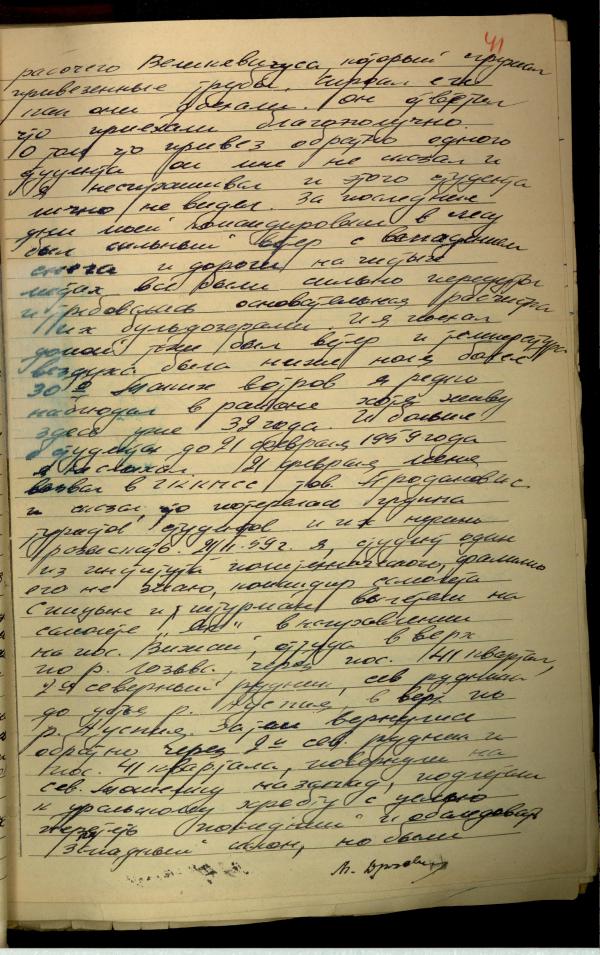 41
рабочего Великевичуса, который грузил
привезенные трубы, спросил его
как они доехали. Он ответил
что приехали благополучно.
О том что привез обратно одного
студента он мне не сказал и
я неспрашивал и этого студента
лично не видел. За последние
дни моей командировки в лесу
был сильный ветер с выпадением
снега и дороги на чистых
местах все были сильно переметены
и требовалась основательная расчистка
их бульдозерами, и я поехал
домой тоже был ветер и температура
воздуха была ниже ноля более
30º. Таких ветров я редко
наблюдал в районе хотя живу
здесь уже 32 года. И больше
о студентах до 21 февраля 1959 года
я не слыхал. 21 февраля меня
вызвал в ГК КПСС тов. Проданов И.С.
и сказал, что потерялась группа
туристов студентов и их нужно
разыскать. 21/II-59г. я, студент один
из института политехнического, фамилию
его не знаю, командир самолета
Спицын и штурман вылетели на
самолете "Як" в направлении
на пос. Вижай, оттуда вверх
по р. Лозьве, через пос. 41 квартал,
2й северный рудник, сев. рудника
до устья р. Ауспия, в верх по
р. Ауспия. Затем вернулись
обратно через 2й сев. рудник и
пос. 41 квартала, повернули на
запад, подлетели
к уральскому хребту с целью
перелететь последний и обследовать
западный склон, но были